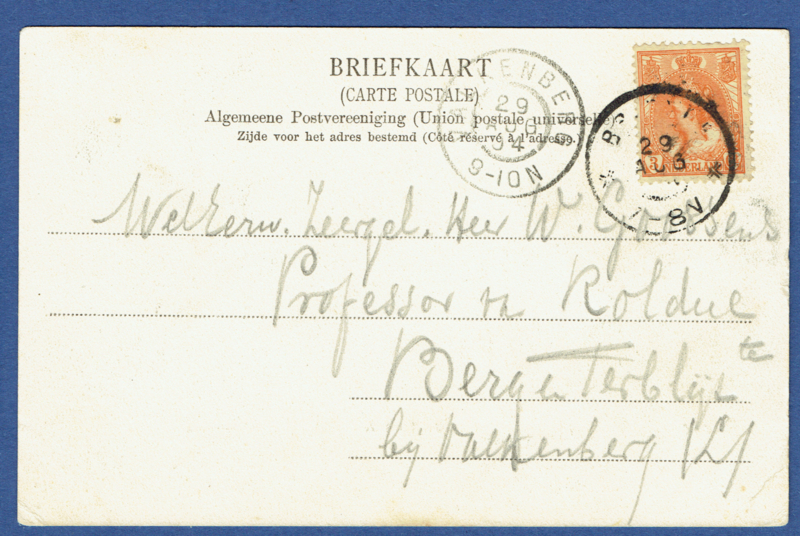 BRIEFKAART
(CARTE POSTALE)
Algemeene Postvereeniging (Union postale universelle)
Zijde voor het adres bestemd (Côté réservé à l'adresse.)
29
AUG
04
9-10N
29
AUG
7-8N
NEDERLAND
Weleerw. Zeergel. Heer W. Goossens
Professor te Rolduc
te
Berg en Terblijt
bij Valkenberg (L)